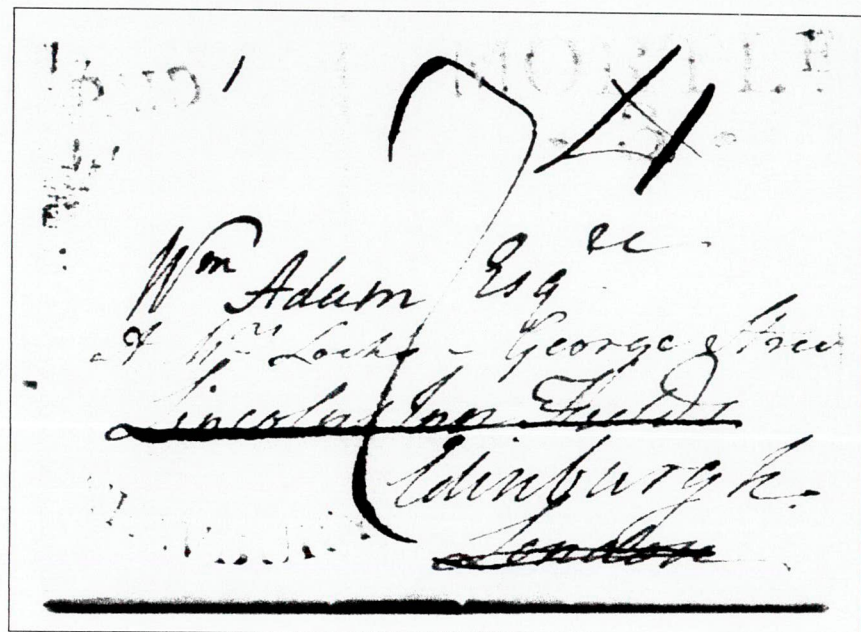 Wm Adam Esqre
At Wm Lochs - George Stree
Lincolns Inn Fields
Edinburgh.
London